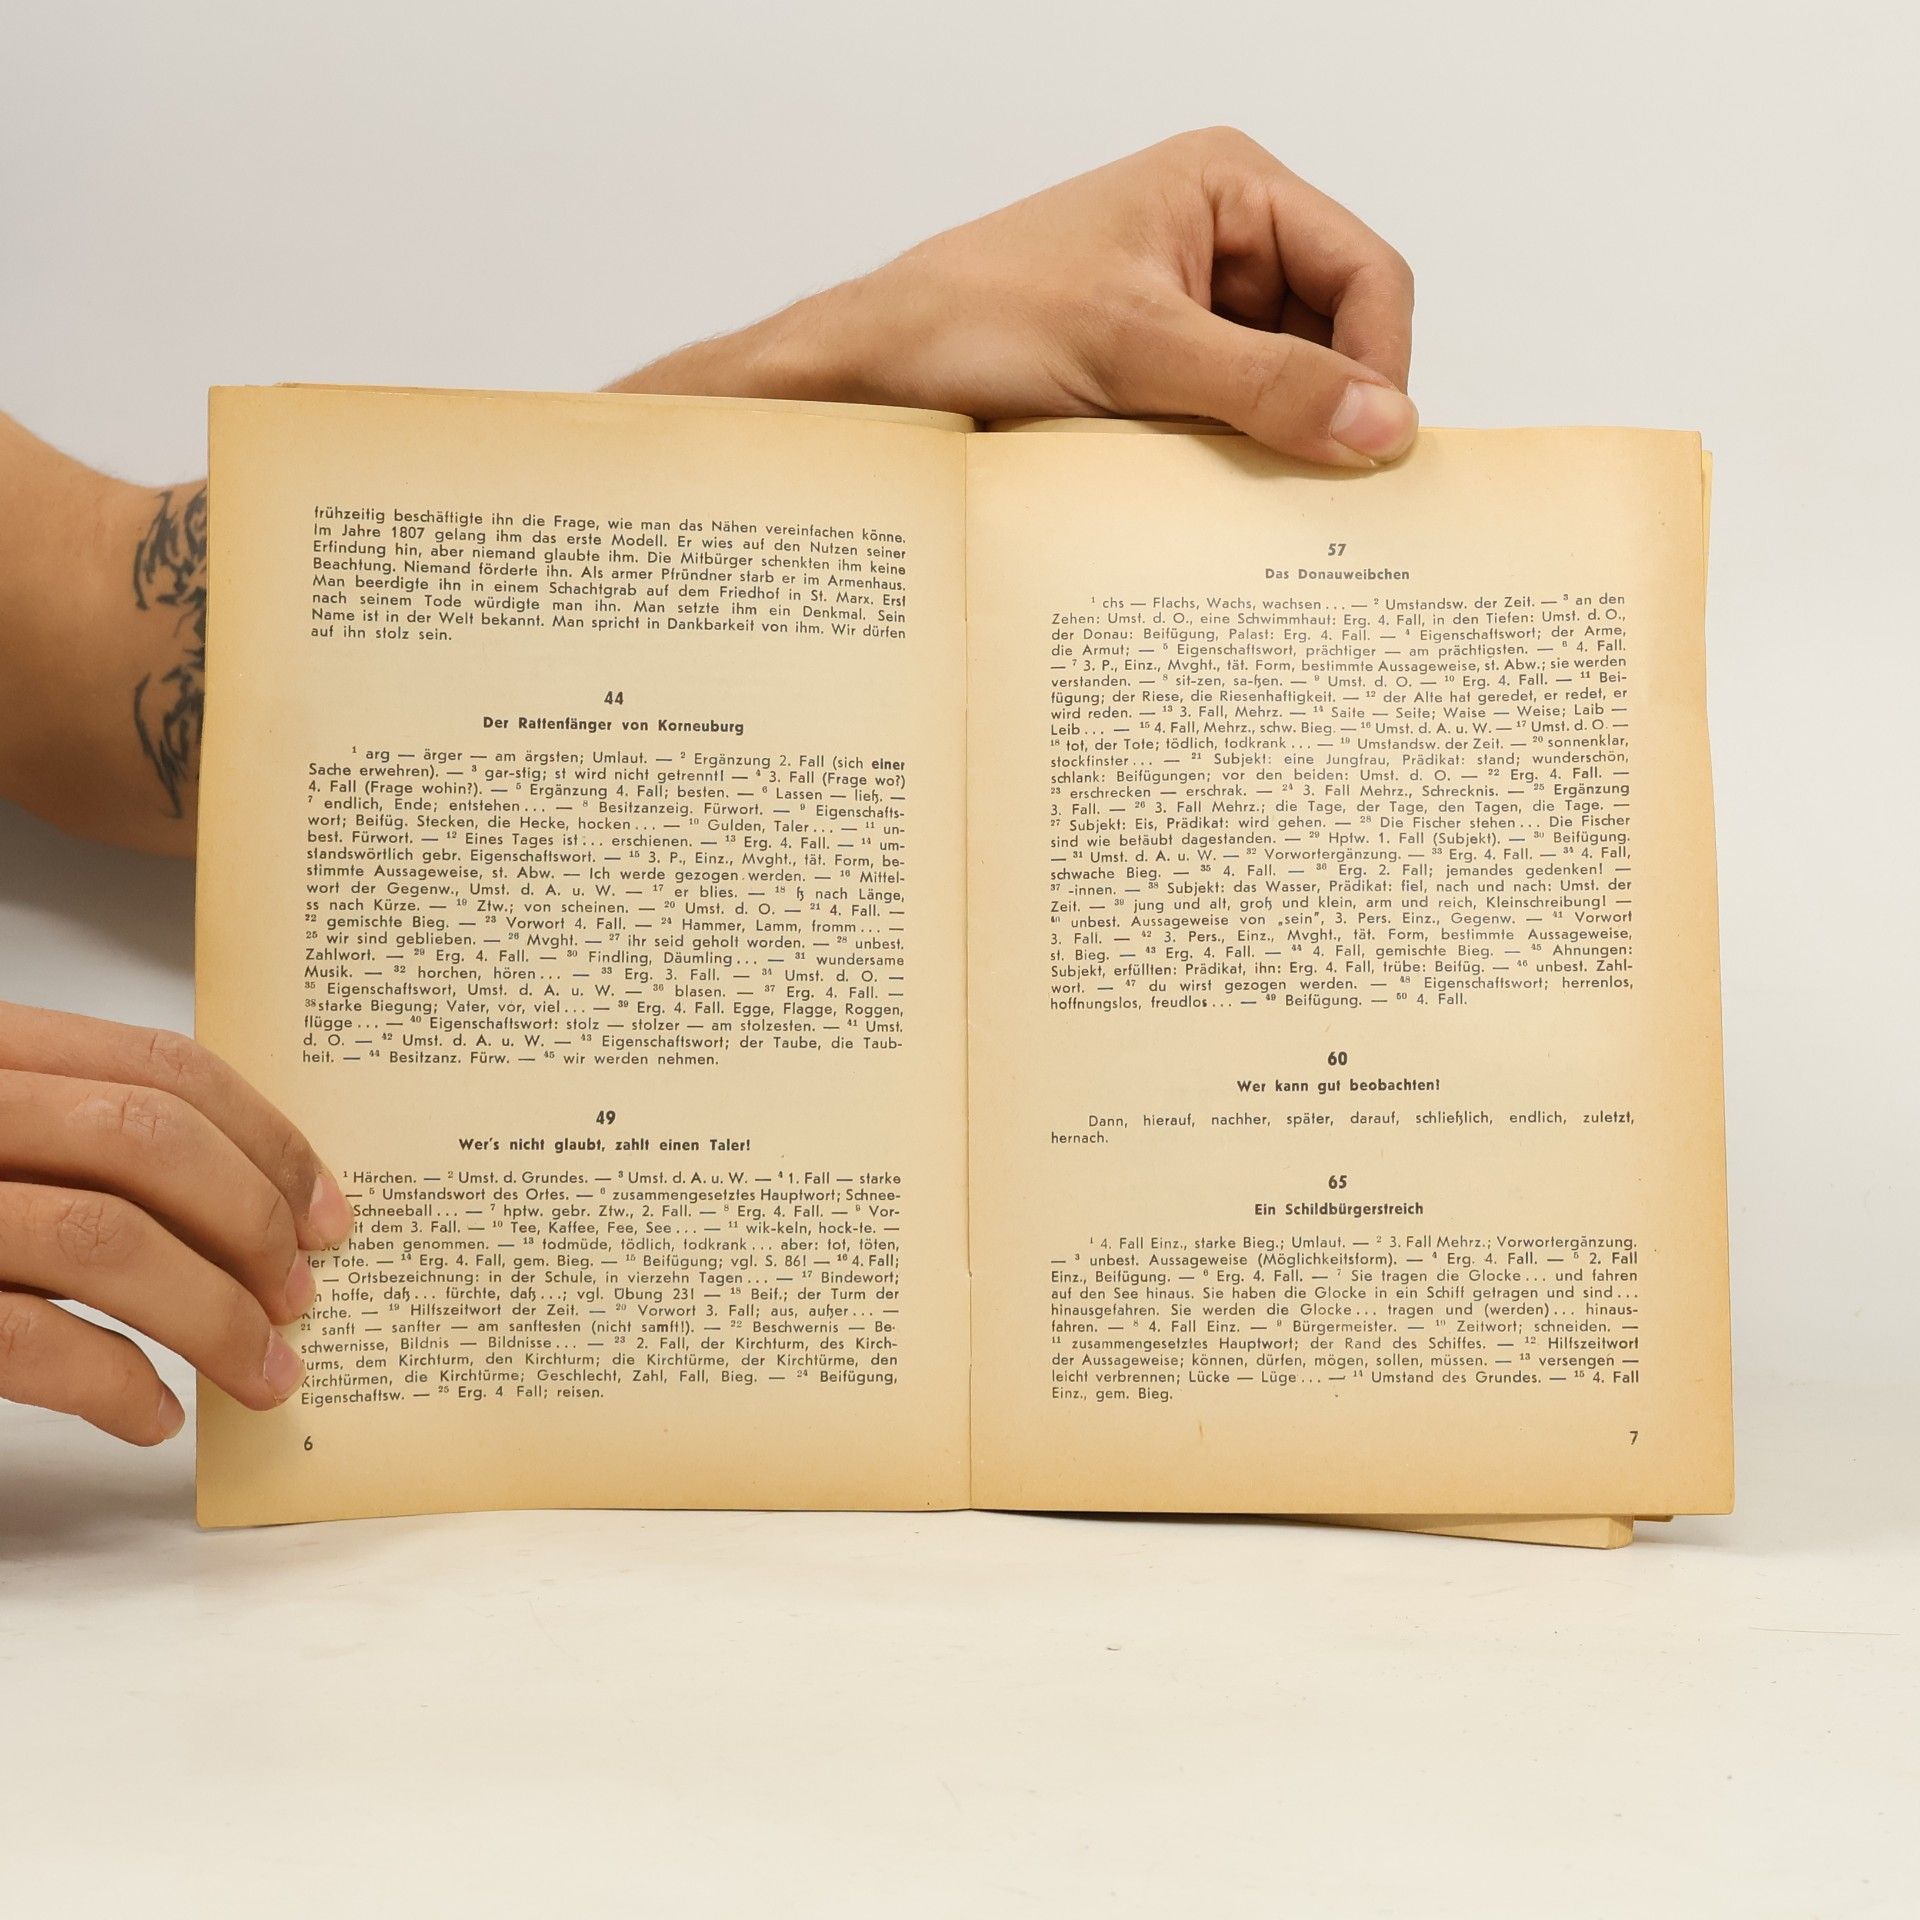 frühzeitig beschäftigte ihn die Frage, wie man das Nähen vereinfachen könne.
Im Jahre 1807 gelang ihm das erste Modell. Er wies auf den Nutzen seiner
Erfindung hin, aber niemand glaubte ihm. Die Mitbürger schenkten ihm keine
Beachtung. Niemand förderte ihn. Als armer Pfründner starb er im Armenhaus.
Man beerdigte ihn in einem Schachtgrab auf dem Friedhof in St. Marx. Erst
nach seinem Tode würdigte man ihn. Man setzte ihm ein Denkmal. Sein
Name ist in der Welt bekannt. Man spricht in Dankbarkeit von ihm. Wir dürfen
auf ihn stolz sein.
44
Der Rattenfänger von Korneuburg
¹ arg — ärger — am ärgsten; Umlaut. — ² Ergänzung 2. Fall (sich einer
Sache erwehren). — ³ gar-stig; st wird nicht getrennt! — ⁴ 3. Fall (Frage wo?)
4. Fall (Frage wohin?). — ⁵ Ergänzung 4. Fall; besten. — ⁶ Lassen — ließ. —
⁷ endlich, Ende; entstehen... — ⁸ Besitzanzeig. Fürwort. — ⁹ Eigenschafts-
wort; Beifüg. Stecken, die Hecke, hocken... — ¹⁰ Gulden, Taler... — ¹¹ un-
best. Fürwort. — ¹² Eines Tages ist... erschienen. — ¹³ Erg. 4. Fall. — ¹⁴ um-
standswörtlich gebr. Eigenschaftswort. — ¹⁵ 3. P., Einz., Mvght., tät. Form, be-
stimmte Aussageweise, st. Abw. — Ich werde gezogen werden. — ¹⁶ Mittel-
wort der Gegenw., Umst. d. A. u. W. — ¹⁷ er blies. — ¹⁸ ß nach Länge,
ss nach Kürze. — ¹⁹ Ztw.; von scheinen. — ²⁰ Umst. d. O. — ²¹ 4. Fall. —
²² gemischte Bieg. — ²³ Vorwort 4. Fall. — ²⁴ Hammer, Lamm, fromm... —
²⁵ wir sind geblieben. — ²⁶ Mvght. — ²⁷ ihr seid geholt worden. — ²⁸ unbest.
Zahlwort. — ²⁹ Erg. 4. Fall. — ³⁰ Findling, Däumling... — ³¹ wundersame
Musik. — ³² horchen, hören... — ³³ Erg. 3. Fall. — ³⁴ Umst. d. O. —
³⁵ Eigenschaftswort, Umst. d. A. u. W. — ³⁶ blasen. — ³⁷ Erg. 4. Fall. —
³⁸ starke Biegung; Vater, vor, viel... — ³⁹ Erg. 4. Fall. Egge, Flagge, Roggen,
flügge... — ⁴⁰ Eigenschaftswort: stolz — stolzer — am stolzesten. — ⁴¹ Umst.
d. O. — ⁴² Umst. d. A. u. W. — ⁴³ Eigenschaftswort; der Taube, die Taub-
heit. — ⁴⁴ Besitzanz. Fürw. — ⁴⁵ wir werden nehmen.
49
Wer's nicht glaubt, zahlt einen Taler!
¹ Härchen. — ² Umst. d. Grundes. — ³ Umst. d. A. u. W. — ⁴ 1. Fall — starke
— ⁵ Umstandswort des Ortes. — ⁶ zusammengesetztes Hauptwort; Schnee-
Schneeball... — ⁷ hptw. gebr. Ztw., 2. Fall. — ⁸ Erg. 4. Fall. — ⁹ Vor-
dem 3. Fall. — ¹⁰ Tee, Kaffee, Fee, See... — ¹¹ wik-keln, hock-te. —
haben genommen. — ¹³ todmüde, tödlich, todkrank... aber: tot, töten,
der Tote. — ¹⁴ Erg. 4. Fall, gem. Bieg. — ¹⁵ Beifügung; vgl. S. 86! — ¹⁶ 4. Fall;
— Ortsbezeichnung: in der Schule, in vierzehn Tagen... — ¹⁷ Bindewort;
hoffe, daß... fürchte, daß...; vgl. Übung 23! — ¹⁸ Beif.; der Turm der
Kirche. — ¹⁹ Hilfszeitwort der Zeit. — ²⁰ Vorwort 3. Fall; aus, außer... —
²¹ sanft — sanfter — am sanftesten (nicht samft!). — ²² Beschwernis — Be-
schwernisse, Bildnis — Bildnisse... — ²³ 2. Fall, der Kirchturm, des Kirch-
turms, dem Kirchturm, den Kirchturm; die Kirchtürme, der Kirchtürme, den
Kirchtürmen, die Kirchtürme; Geschlecht, Zahl, Fall, Bieg. — ²⁴ Beifügung,
Eigenschaftsw. — ²⁵ Erg. 4 Fall; reisen.
6
57
Das Donauweibchen
¹ chs — Flachs, Wachs, wachsen... — ² Umstandsw. der Zeit. — ³ an den
Zehen: Umst. d. O., eine Schwimmhaut: Erg. 4. Fall, in den Tiefen: Umst. d. O.,
der Donau: Beifügung, Palast: Erg. 4. Fall. — ⁴ Eigenschaftswort; der Arme,
die Armut; — ⁵ Eigenschaftswort, prächtiger — am prächtigsten. — ⁶ 4. Fall.
— ⁷ 3. P., Einz., Mvght., tät. Form, bestimmte Aussageweise, st. Abw.; sie werden
verstanden. — ⁸ sit-zen, sa-ßen. — ⁹ Umst. d. O. — ¹⁰ Erg. 4. Fall. — ¹¹ Bei-
fügung; der Riese, die Riesenhaftigkeit. — ¹² der Alte hat geredet, er redet, er
wird reden. — ¹³ 3. Fall, Mehrz. — ¹⁴ Saite — Seite; Waise — Weise; Laib —
Leib... — ¹⁵ 4. Fall, Mehrz., schw. Bieg. — ¹⁶ Umst. d. A. u. W. — ¹⁷ Umst. d. O. —
¹⁸ tot, der Tote; tödlich, todkrank... — ¹⁹ Umstandsw. der Zeit. — ²⁰ sonnenklar,
stockfinster... — ²¹ Subjekt: eine Jungfrau, Prädikat: stand; wunderschön,
schlank: Beifügungen; vor den beiden: Umst. d. O. — ²² Erg. 4. Fall. —
²³ erschrecken — erschrak. — ²⁴ 3. Fall Mehrz., Schrecknis. — ²⁵ Ergänzung
3. Fall. — ²⁶ 3. Fall Mehrz.; die Tage, der Tage, den Tagen, die Tage. —
²⁷ Subjekt: Eis, Prädikat: wird gehen. — ²⁸ Die Fischer stehen... Die Fischer
sind wie betäubt dagestanden. — ²⁹ Hptw. 1. Fall (Subjekt). — ³⁰ Beifügung.
— ³¹ Umst. d. A. u. W. — ³² Vorwortergänzung. — ³³ Erg. 4. Fall. — ³⁴ 4. Fall,
schwache Bieg. — ³⁵ 4. Fall. — ³⁶ Erg. 2. Fall; jemandes gedenken! —
³⁷ -innen. — ³⁸ Subjekt: das Wasser, Prädikat: fiel, nach und nach: Umst. der
Zeit. — ³⁹ jung und alt, groß und klein, arm und reich, Kleinschreibung! —
⁴⁰ unbest. Aussageweise von „sein", 3. Pers. Einz., Gegenw. — ⁴¹ Vorwort
3. Fall. — ⁴² 3. Pers., Einz., Mvght., tät. Form, bestimmte Aussageweise,
st. Bieg. — ⁴³ Erg. 4. Fall. — ⁴⁴ 4. Fall, gemischte Bieg. — ⁴⁵ Ahnungen:
Subjekt, erfüllten: Prädikat, ihn: Erg. 4. Fall, trübe: Beifüg. — ⁴⁶ unbest. Zahl-
wort. — ⁴⁷ du wirst gezogen werden. — ⁴⁸ Eigenschaftswort; herrenlos,
hoffnungslos, freudlos... — ⁴⁹ Beifügung. — ⁵⁰ 4. Fall.
60
Wer kann gut beobachten!
Dann, hierauf, nachher, später, darauf, schließlich, endlich, zuletzt,
hernach.
65
Ein Schildbürgerstreich
¹ 4. Fall Einz., starke Bieg.; Umlaut. — ² 3. Fall Mehrz.; Vorwortergänzung.
— ³ unbest. Aussageweise (Möglichkeitsform). — ⁴ Erg. 4. Fall. — ⁵ 2. Fall
Einz., Beifügung. — ⁶ Erg. 4. Fall. — ⁷ Sie tragen die Glocke... und fahren
auf den See hinaus. Sie haben die Glocke in ein Schiff getragen und sind...
hinausgefahren. Sie werden die Glocke... tragen und (werden)... hinaus-
fahren. — ⁸ 4. Fall Einz. — ⁹ Bürgermeister. — ¹⁰ Zeitwort; schneiden. —
¹¹ zusammengesetztes Hauptwort; der Rand des Schiffes. — ¹² Hilfszeitwort
der Aussageweise; können, dürfen, mögen, sollen, müssen. — ¹³ versengen —
leicht verbrennen; Lücke — Lüge... — ¹⁴ Umstand des Grundes. — ¹⁵ 4. Fall
Einz., gem. Bieg.
7